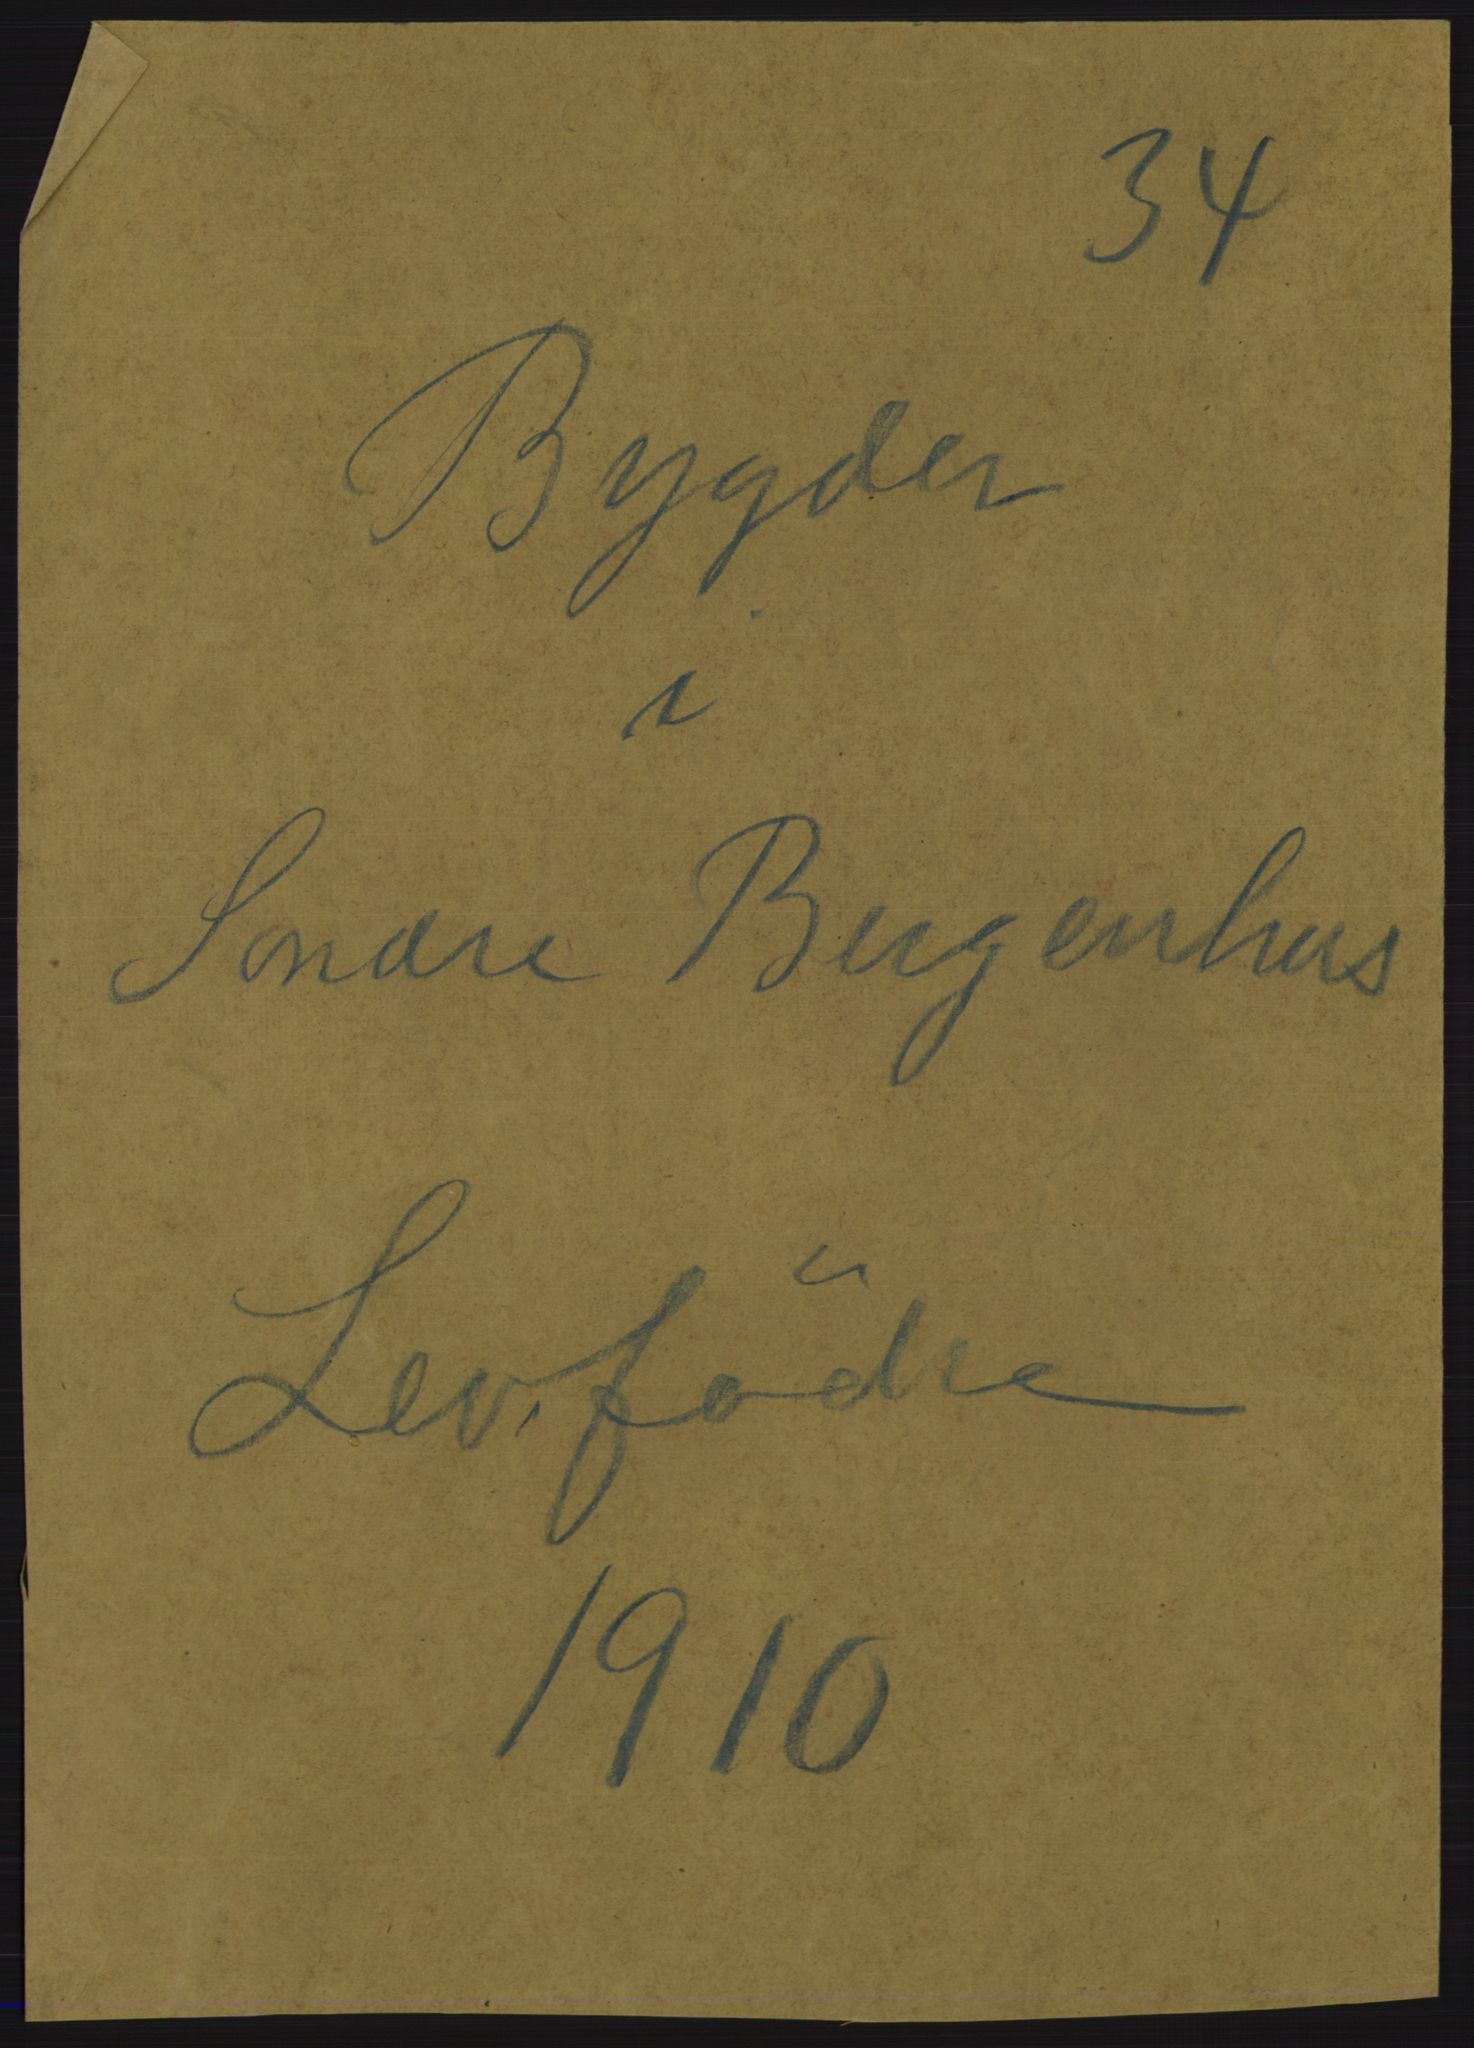 34
Bygder
i
Sondre Bergenhus
Lev. födte
1910